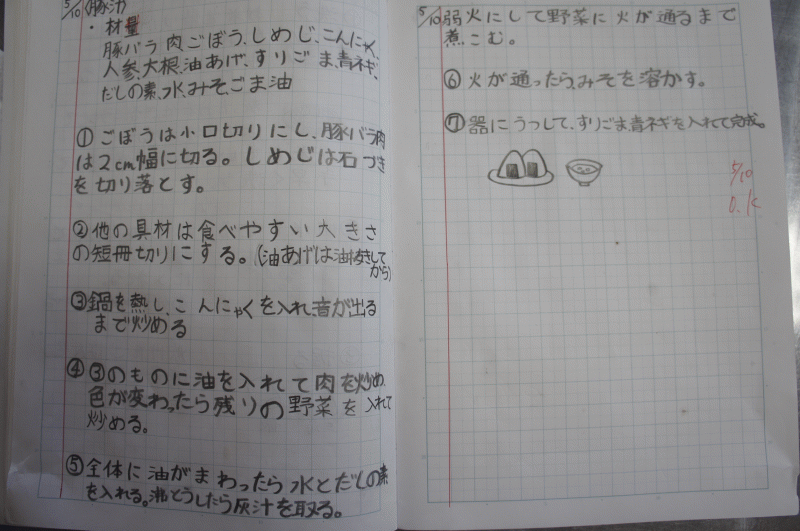 5/10 (豚汁)
・材量
豚バラ肉ごぼう、しめじ、こんにゃく
人参、大根、油あげ、すりごま、青ネギ、
だしの素、水、みそ、ごま油
①ごぼうは小口切りにし、豚バラ肉
は2cm幅に切る。しめじは石づき
を切り落とす。
②他の具材は食べやすい大きさ
の短冊切りにする。(油あげは油抜きして
から)
③鍋を熱し、こんにゃくを入れ、音が出る
まで炒める
④③のものに油を入れて肉を炒め、
色が変わったら残りの野菜を入れて
炒める。
⑤全体に油がまわったら水とだしの素
を入れる。沸とうしたら灰汁を取る。
5/10 弱火にして野菜に火が通るまで
煮こむ。
⑥火が通ったら、みそを溶かす。
⑦器にうつして、すりごま、青ネギを入れて完成。
5/10
O.K